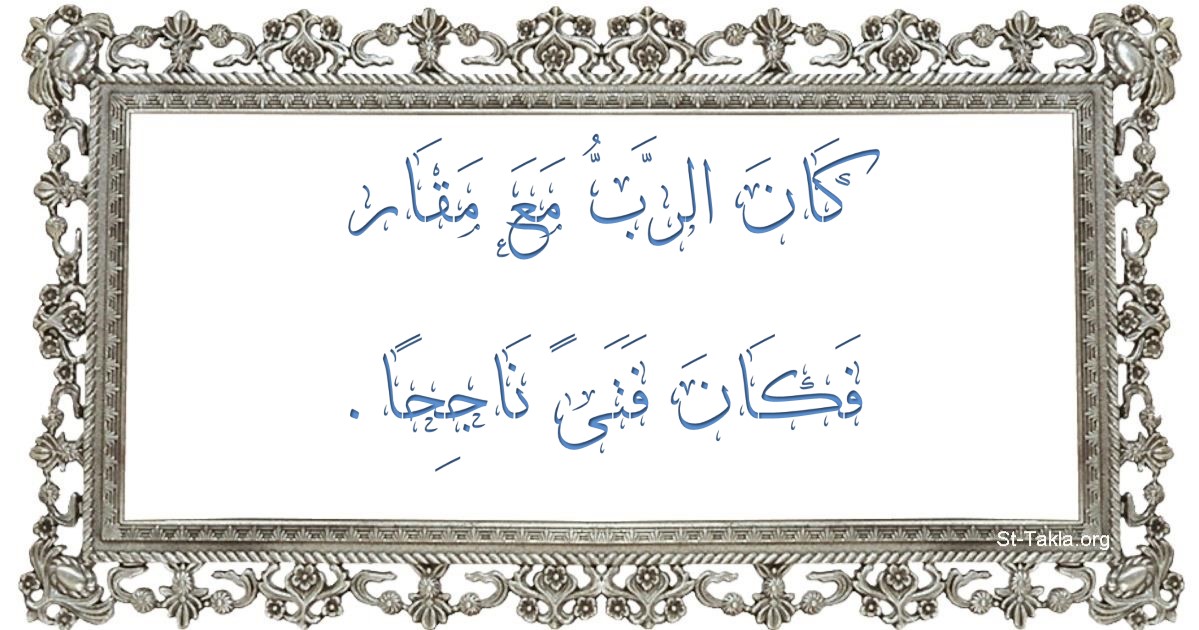 كَانَ الرَّبُّ مَعَ مَقَار
فَكَانَ فَتَىً نَاجِحًا .
St-Takla.org